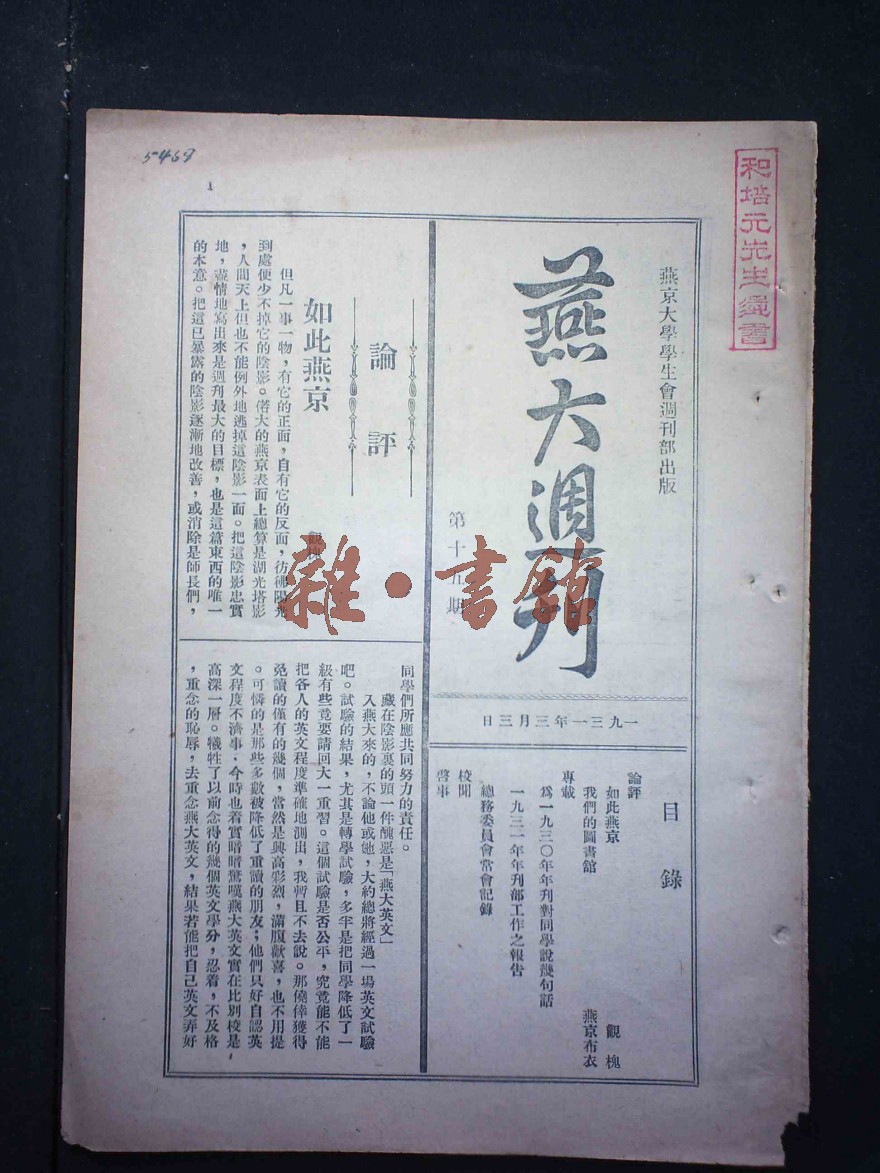 5468
1
和培元先生遺書
燕京大學學生會週刊部出版
燕大週刊
第十五期
一九三一年三月三日
目錄
論評
如此燕京 觀槐
我們的圖書館 燕京布衣
專載
為一九三〇年年刊對同學說幾句話
一九三一年年刊部工作之報告
總務委員會常會記錄
校聞
啓事
論評
如此燕京
觀槐
但凡一事一物,有它的正面,自有它的反面,彷彿陽光
到處便少不掉它的陰影。偌大的燕京表面上總算是湖光塔影
,人間天上但也不能例外地逃掉這陰影一面。把這陰影忠實
地,盡情地寫出來是週刊最大的目標,也是這篇東西的唯一
的本意。把這已暴露的陰影逐漸地改善,或消除是師長們,
同學們所應共同努力的責任。
藏在陰影裏的頭一件醜惡是「燕大英文」
入燕大來的,不論他或她,大約總將經過一場英文試驗
吧。試驗的結果,尤其是轉學試驗,多半是把同學降低了一
級有些竟要請回大一重習。這個試驗是否公平,究竟能不能
把各人的英文程度準確地測出,我暫且不去說。那僥倖獲得
免讀的僅有的幾個,當然是興高彩烈,滿腹歡喜,也不用提
。可憐的是那些多數被降低了重讀的朋友;他們只好自認英
文程度不濟事.今時也着實暗暗驚嘆燕大英文實在比別校是
高深一層。犧牲了以前念得的幾個英文學分,忍着,不及格
,重念的恥辱,去重念燕大英文,結果若能把自己英文弄好
雜·書館